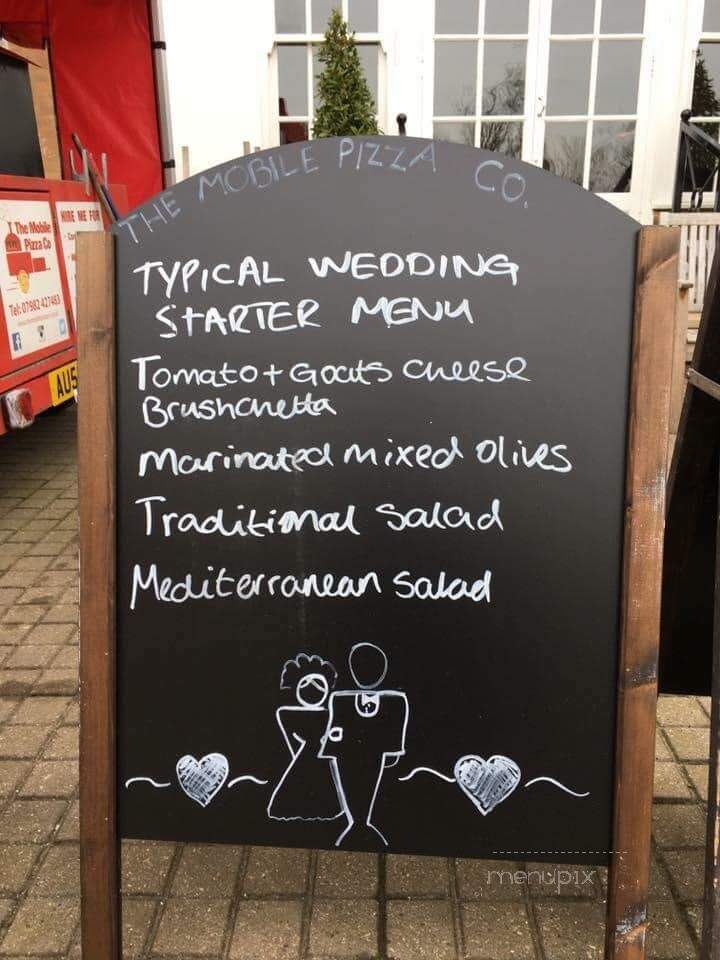 THE MOBILE PIZZA CO.
TYPICAL WEDDING
STARTER MENU
Tomato + Goats cheese
Brushchetta
Marinated mixed olives
Traditional salad
Mediterranean salad
The Mobile
Pizza Co
Tel: 07982 427483
HIRE ME FOR
AU5
menupix